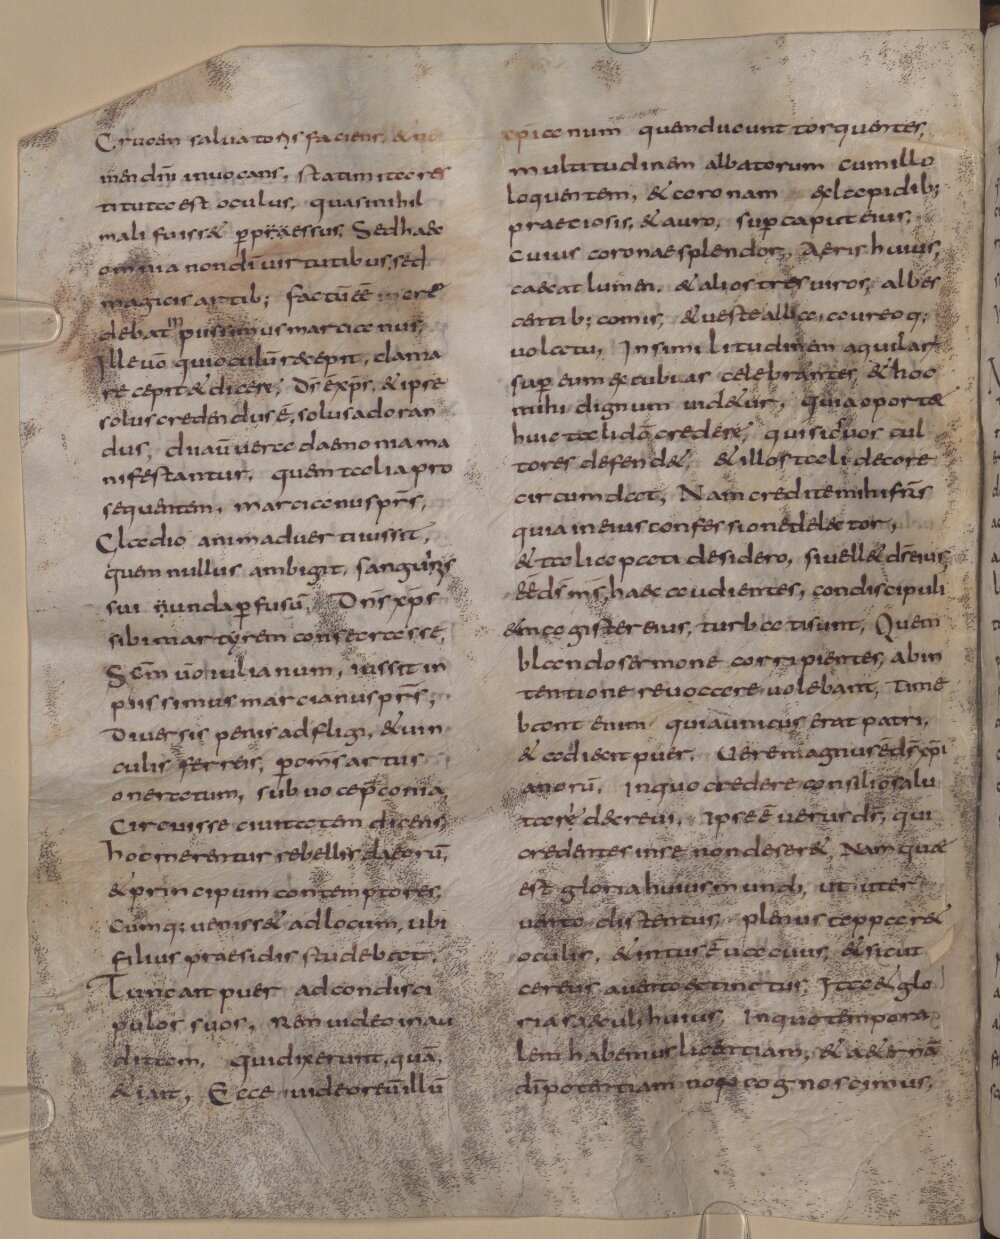 Crucem saluatoris faciens, & no
men dn̄i inuocans, statim ita res
titutus est oculus, quasi nihil
mali fuiss& p̱praessus, Sed haec
omnia non dī uirtutibus, sed
magicis artib; factū eē
debat impiissimus marcianus,
Ille uō qui oculū recepit, clama
re cepit & dicere, Dn̄s ē xp̄s, & ipse
solus credendus ē, solus adoran
dus, cū uero daemonia ma
nifestantur, quem talia pro
sequentem, marcianus prs̄,
Gladio animaduerti iussit,
quem nullus ambigit, sanguinis
sui unda p̱fusū, Dn̄s xp̄s
sibi martyrem consecrasse,
Scm̄ uō iulianum, iussit im
piissimus marcianus prs̄,
Diuersis penis adfligi, & uin
culis ferreis, p̱ omis̄ artus
oneratum, sub uoce p̄conia
Circuisse ciuitatem dicens,
hoc merentur rebelles deorū,
& principum contemptores,
Cumq; uenisset ad locum, ubi
filius praesidis studebat,
Tunc ait puer ad condisci
pulos suos, Rem uideo inau
ditam, Qui dixerunt, quā,
& iait, Ecce uideo reū illū
xp̄ianum quem ducunt torquentes,
multitudinem albatorum cum illo
loquentem, & coronam ex lapidib;
praetiosis, & auro, sup̱ caput eius,
Cuius coronae splendor, Aeris huius,
caecat lumen, & alios tres uiros, albes
centib; comis, & ueste alba, aureoq;
uolatu, In similitudinem aquilar̄
sup̱ eum excubias celebrantes, & hoc
mihi dignum uidetur, quia oport&
huic tali dō credere, qui sic suos cul
tores defend&, & illos tali decore
circumdat, Nam credite mihi frs̄
quia in eius confessione delector,
& talia pati desidero, si uell& ds̄ eius,
eē ds̄ ms̄, haec audientes, condiscipuli
& magister eius, turbati sunt, Quem
blando sermone corripientes, ab in
tentione reuocare uolebant, Time
bant enim quia unicus erat patri,
& adiecit puer, Uere magnus ē ds̄ xp̄i
anorū, In quo credere consilio salu
tare decreui, Ipse ē uerus ds̄, qui
credentes in se non deser&, Nam quae
est gloria huius mundi, ut uter
uento distentus, plenus appar&
oculis, & intus ē uacuus, & sicut
cereus a uento extinctus, Ita & glo
ria saeculi huius, In quo tempora
lem habemus licentiam, & aeternā
dī potentiam non cognoscimus,